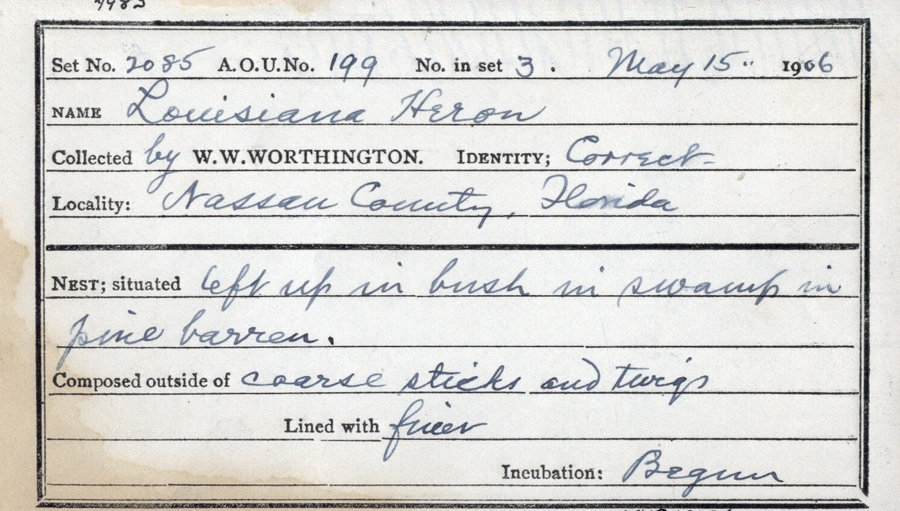 Set No. 2085 A.O.U.No. 199 No. in set 3. May 15.. 1906
NAME Louisiana Heron
Collected by W.W.WORTHINGTON. IDENTITY; Correct-
Locality: Nassau County, Florida
NEST; situated 6ft up in bush in swamp in
pine barren.
Composed outside of coarse sticks and twigs
Lined with finer
Incubation: Begun